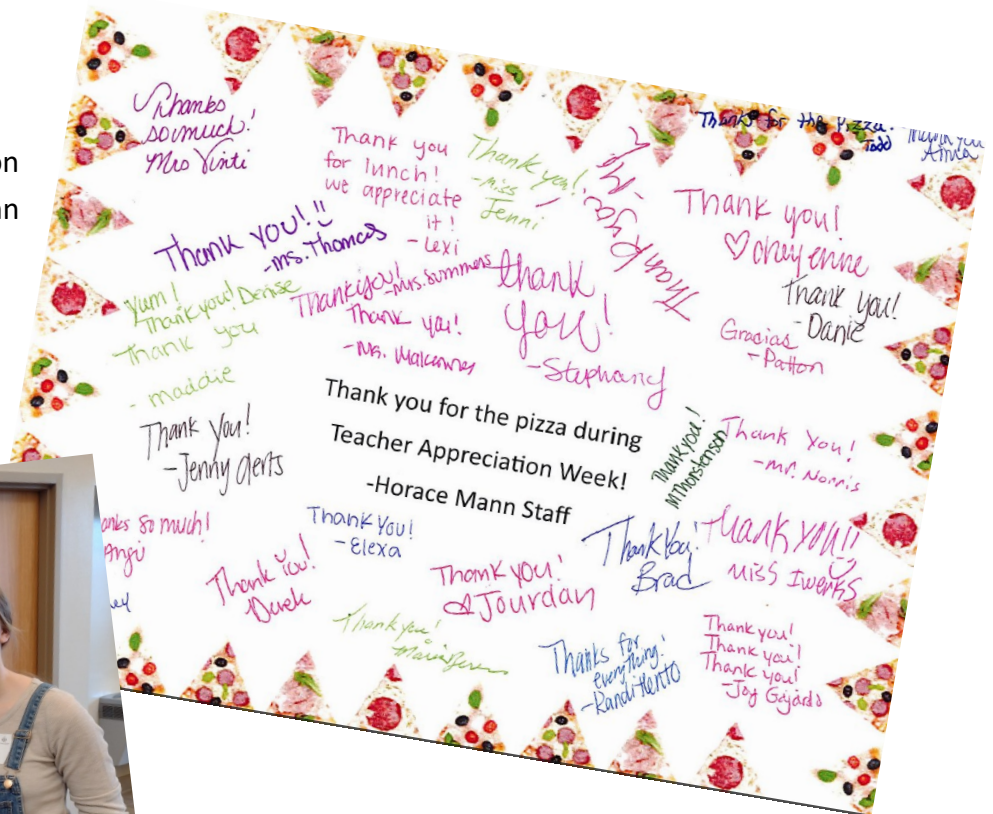 on
an
Thanks
so much!
Mrs Vinti
Thank you
for lunch!
we appreciate
it!
- Lexi
Thank you!
- Miss
Jenni
Thank you
Thanks for the pizza.
Todd
Thank you
Anna
Thank you!
♡ Cheyenne
Thank you!
- Danie
Gracias
- Patton
Thank YOU!!
-Ms. Thomas
Yum!
Thank you! Denise
Thank you
- maddie
Thank you!
-Mrs. Summers
Thank you!
- Ms.
thank
you!
- Stephany
Thank you for the pizza during
Teacher Appreciation Week!
-Horace Mann Staff
Thank you!
M Thorstenson
Thank You!
- Mr. Norris
Thank You!
-Jenny Aerts
anks so much!
Angi
ey
Thank You!
Derek
Thank You!
- Elexa
Thank you!
♡ Jourdan
Thank You!
Brad
Thank you!!
Miss Iwerks
Thank you!
Thanks for
everything!
-Randi
Thank you!
Thank you!
Thank you!
-Joy Gajardo